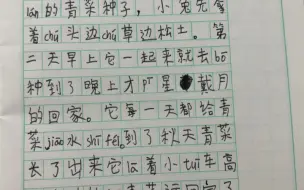 lán的青菜种子，小兔先拿
着chú头边chú草边松土。第
二天早上它一起来就去bō
种到了晚上才pī星戴月
的回家。它每一天都给青
菜jiāo水shī féi。到了秋天青菜
长了出来它lā着小tuī车高